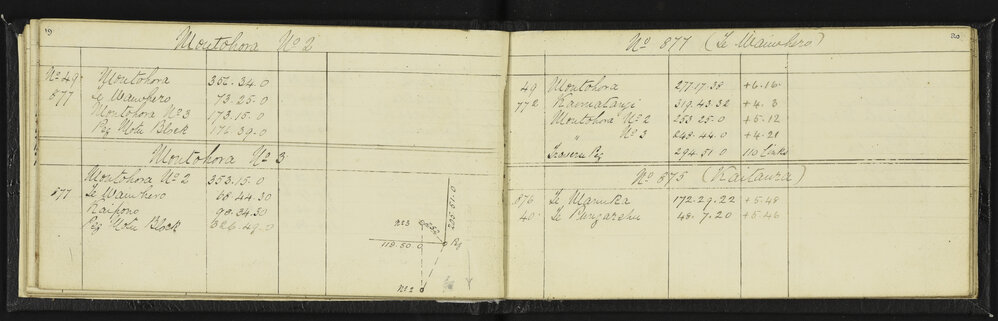 19
Moutohora No 2
No 49 Moutohora 356.34.0
877 Te Wainhero 73.25.0
Moutohora No 3 173.15.0
Peg Motu Block 176.39.0
Moutohora No 3
Moutohora No 2 353.15.0
877 Te Wainhero 68.44.30
Raipono 98.34.30
Peg Motu Block 326.49.0
205.51.0
No 3
118.50.0 Peg
No 2
20
No 877 (Te Wainhero)
49 Moutohora 277.17.38 +6.16
772 Raimatangi 319.43.32 +4.3
Moutohora No 2 253.25.0 +5.12
" No 3 248.44.0 +4.21
Traverse Peg 294.51.0 110 links
No 875 (Kaitaura)
876 Te Manuka 172.29.22 +5.48
40 48.7.20 +5.46